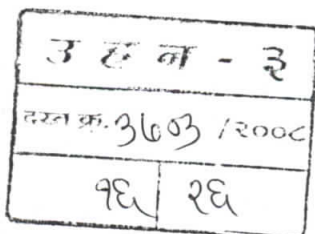 उ ह न - ३
दस्त क्र. ३७०३ /२००८
१६ २६